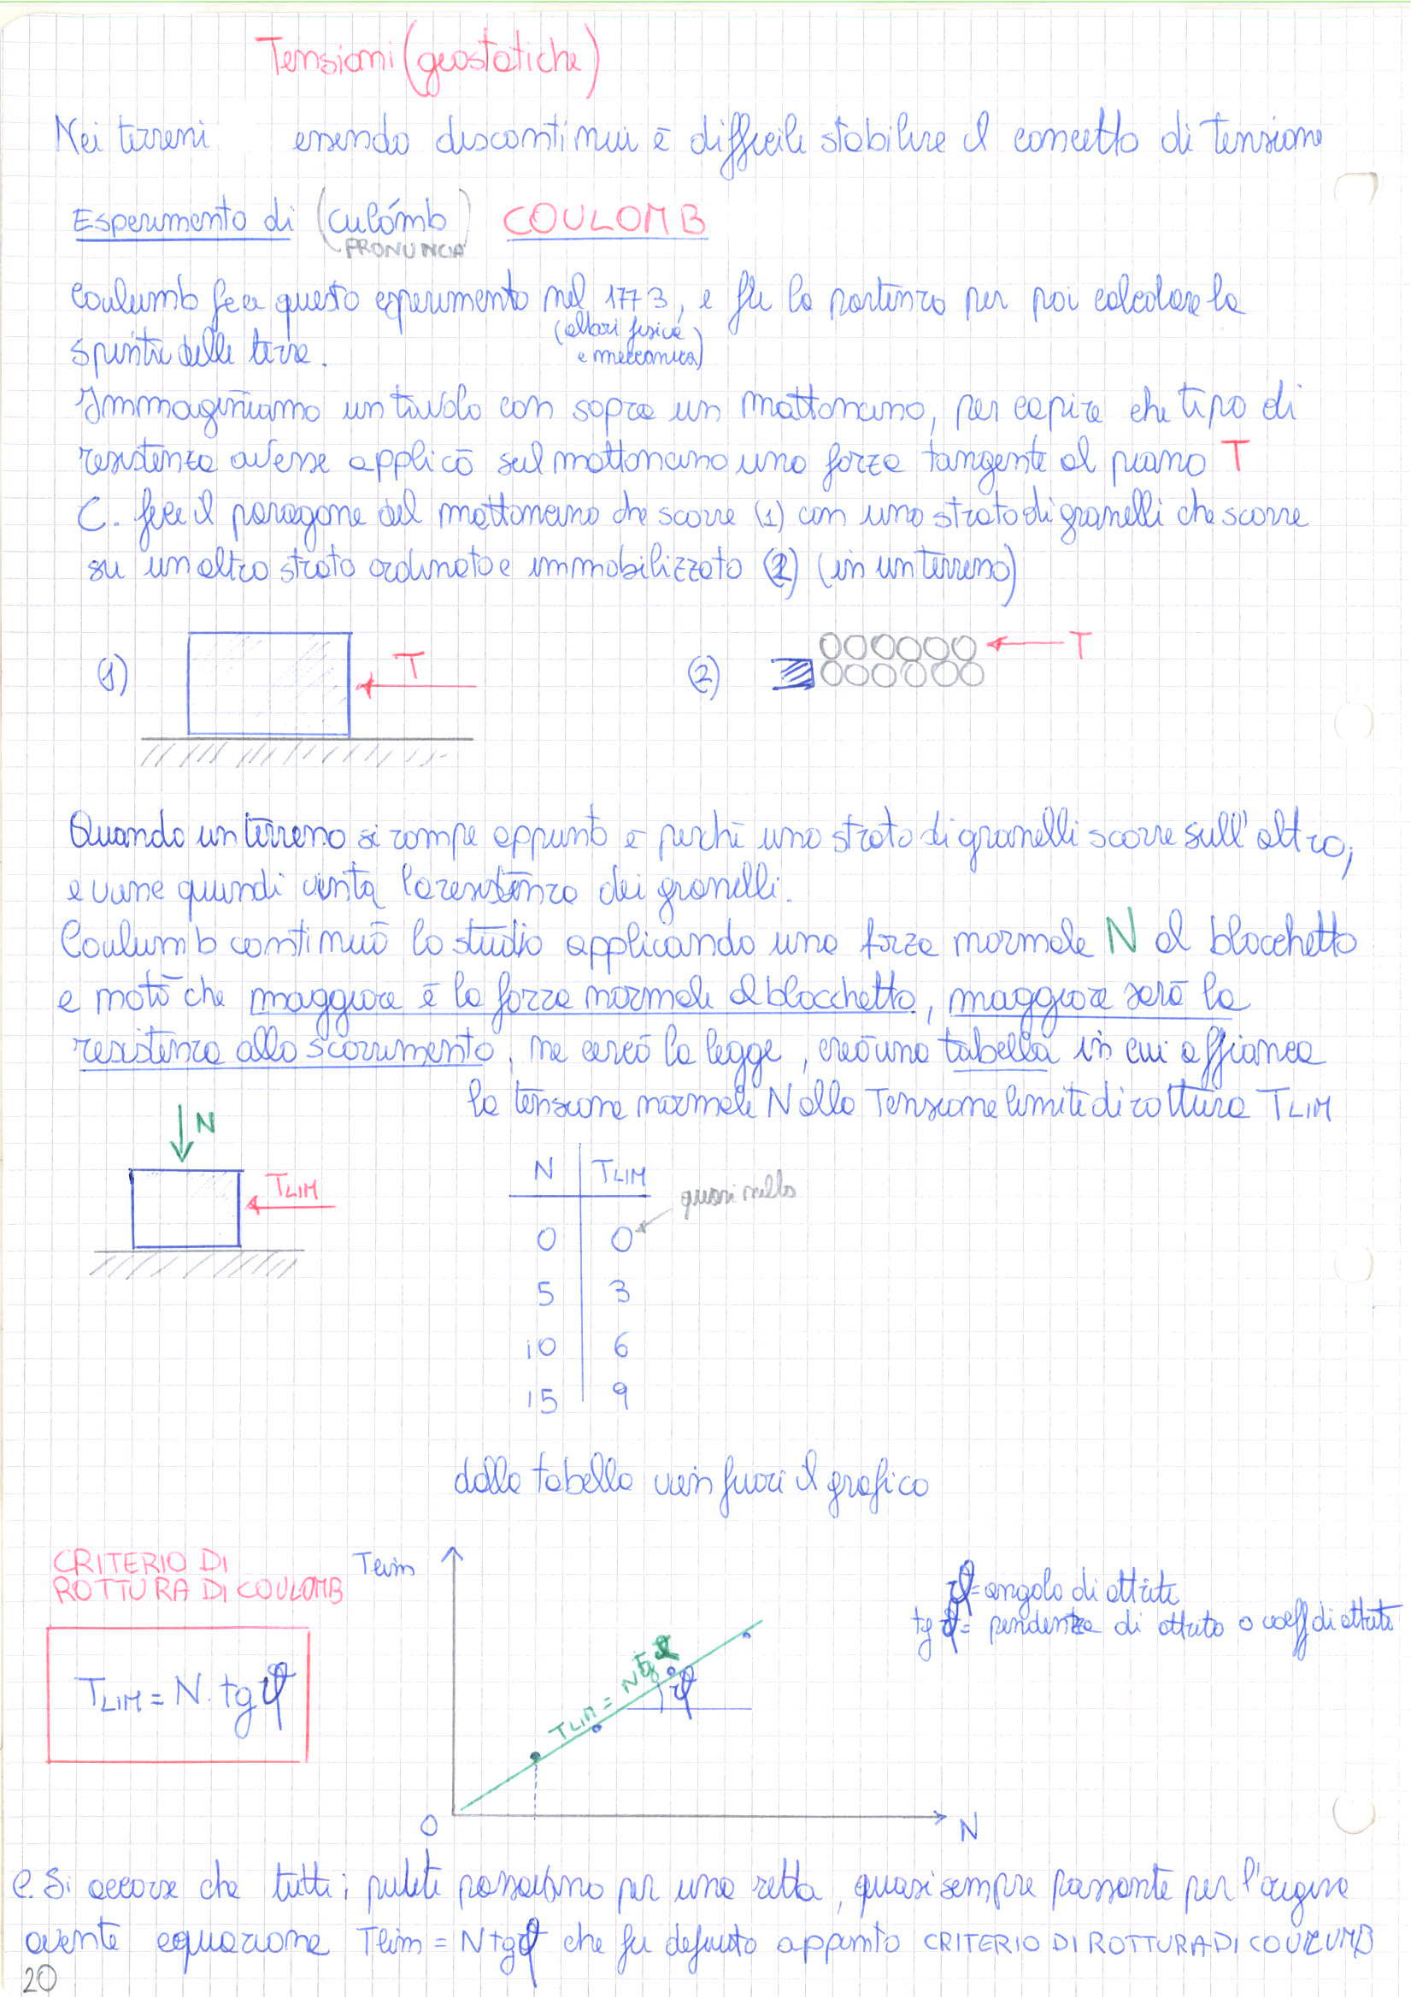 Tensioni (geostatiche)
Nei terreni essendo discontinui è difficile stabilire il concetto di tensione
Esperimento di (Culómb) COULOMB
PRONUNCIA
Coulumb fece questo esperimento nel 1773, e fu la partenza per poi calcolare la
(albori fisica
spinta delle terre.
e meccanica)
Immaginiamo un tavolo con sopra un mattoncino, per capire che tipo di
resistenza avesse applicò sul mattoncino una forza tangente al piano T
C. fece il paragone del mattoncino che scorre (1) con uno strato di granelli che scorre
su un altro strato ordinato e immobilizzato (2) (in un terreno)
(1) T
(2) T
Quando un terreno si rompe appunto è perchè uno strato di granelli scorre sull'altro,
e viene quindi vinta la resistenza dei granelli.
Coulumb continuò lo studio applicando una forza normale N al blocchetto
e notò che maggiore è la forza normale al blocchetto, maggiore sarà la
resistenza allo scorrimento, ne cercò la legge, creò una tabella in cui affianca
la tensione normale N alla Tensione limite di rottura TLIM
N
TLIM
N TLIM
quasi nullo
0 0
5 3
10 6
15 9
dalla tabella vien fuori il grafico
CRITERIO DI
ROTTURA DI COULOMB
TLIM = N · tg φ
Tlim
TLIM = N tg φ
φ
O
N
φ = angolo di attrito
tg φ = pendenza di attrito o coeff di attrito
C. si accorse che tutti i puliti passavano per una retta, quasi sempre passante per l'origine
avente equazione Tlim = N tg φ che fu definito appunto CRITERIO DI ROTTURA DI COULUMB
20